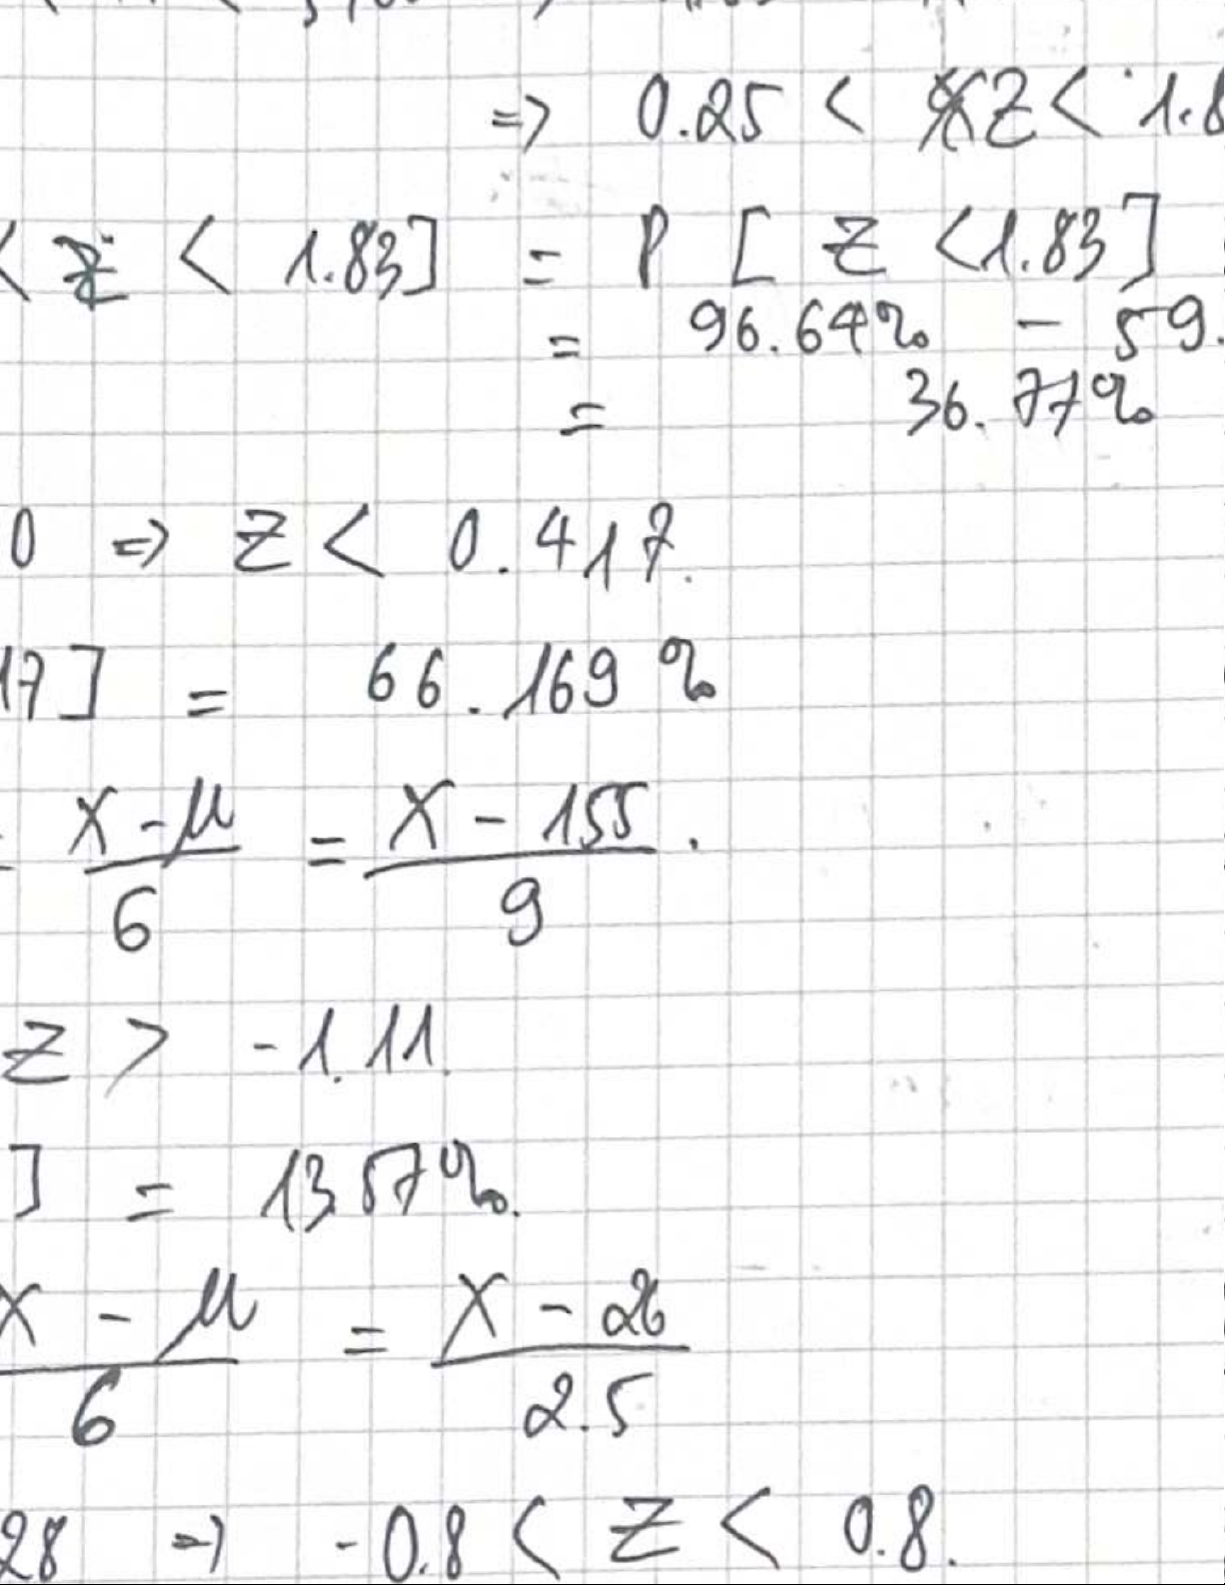 => 0.25 < Z < 1.8
< Z < 1.83] = P [Z < 1.83]
= 96.64% - 59.
= 36.77%
0 => Z < 0.417.
17] = 66.169%
X-μ / 6 = X - 155 / 9.
Z > -1.11.
] = 13.57%.
X - μ / 6 = X - 26 / 2.5
28 => -0.8 < Z < 0.8.